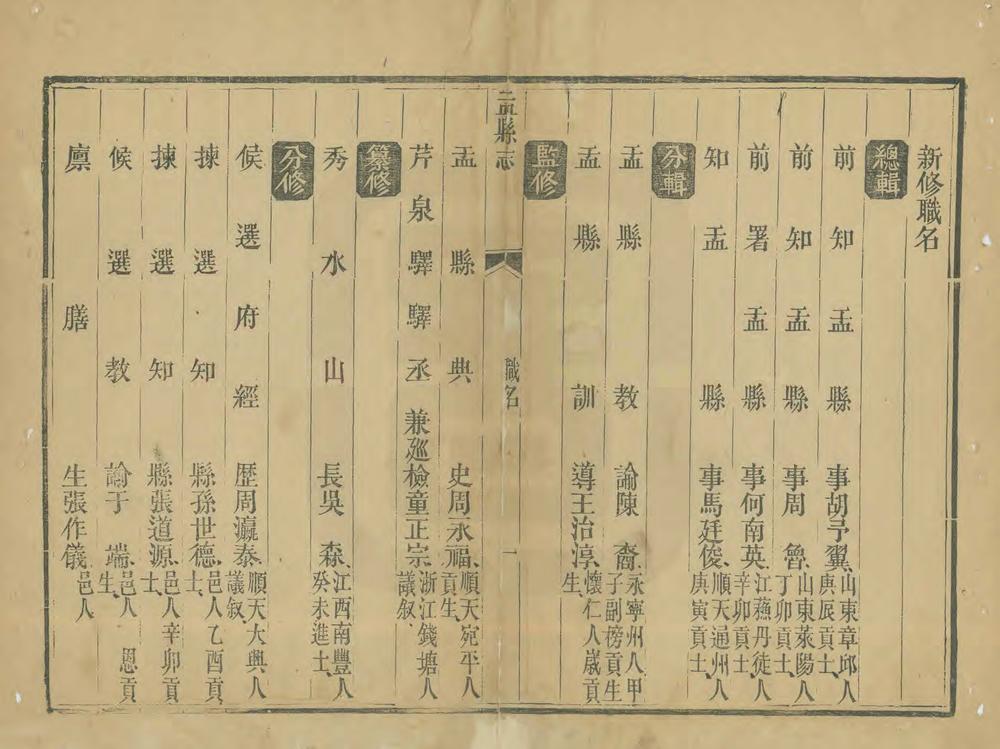 新修職名
總輯
前知盂縣事胡予翼山東章邱人庚辰貢士
前知盂縣事周魯山東萊陽人丁卯貢士
前署盂縣事何南英江蘇丹徒人辛卯貢士
知盂縣事馬廷俊順天通州人庚寅貢士
分輯
盂縣教諭陳裔永寧州人甲子副榜貢生
盂縣訓導王治淳懷仁人歲貢生
監修
盂縣志
職名
一
盂縣典史周永福順天宛平人貢生
芹泉驛驛丞兼廵檢童正宗浙江錢塘人議叙
纂修
秀水山長吳森江西南豐人癸未進士
分修
候選府經歷周瀛泰順天大興人議叙
揀選知縣孫世德邑人乙酉貢士
揀選知縣張道源邑人辛卯貢士
候選教諭于端邑人恩貢生
廩膳生張作儀邑人